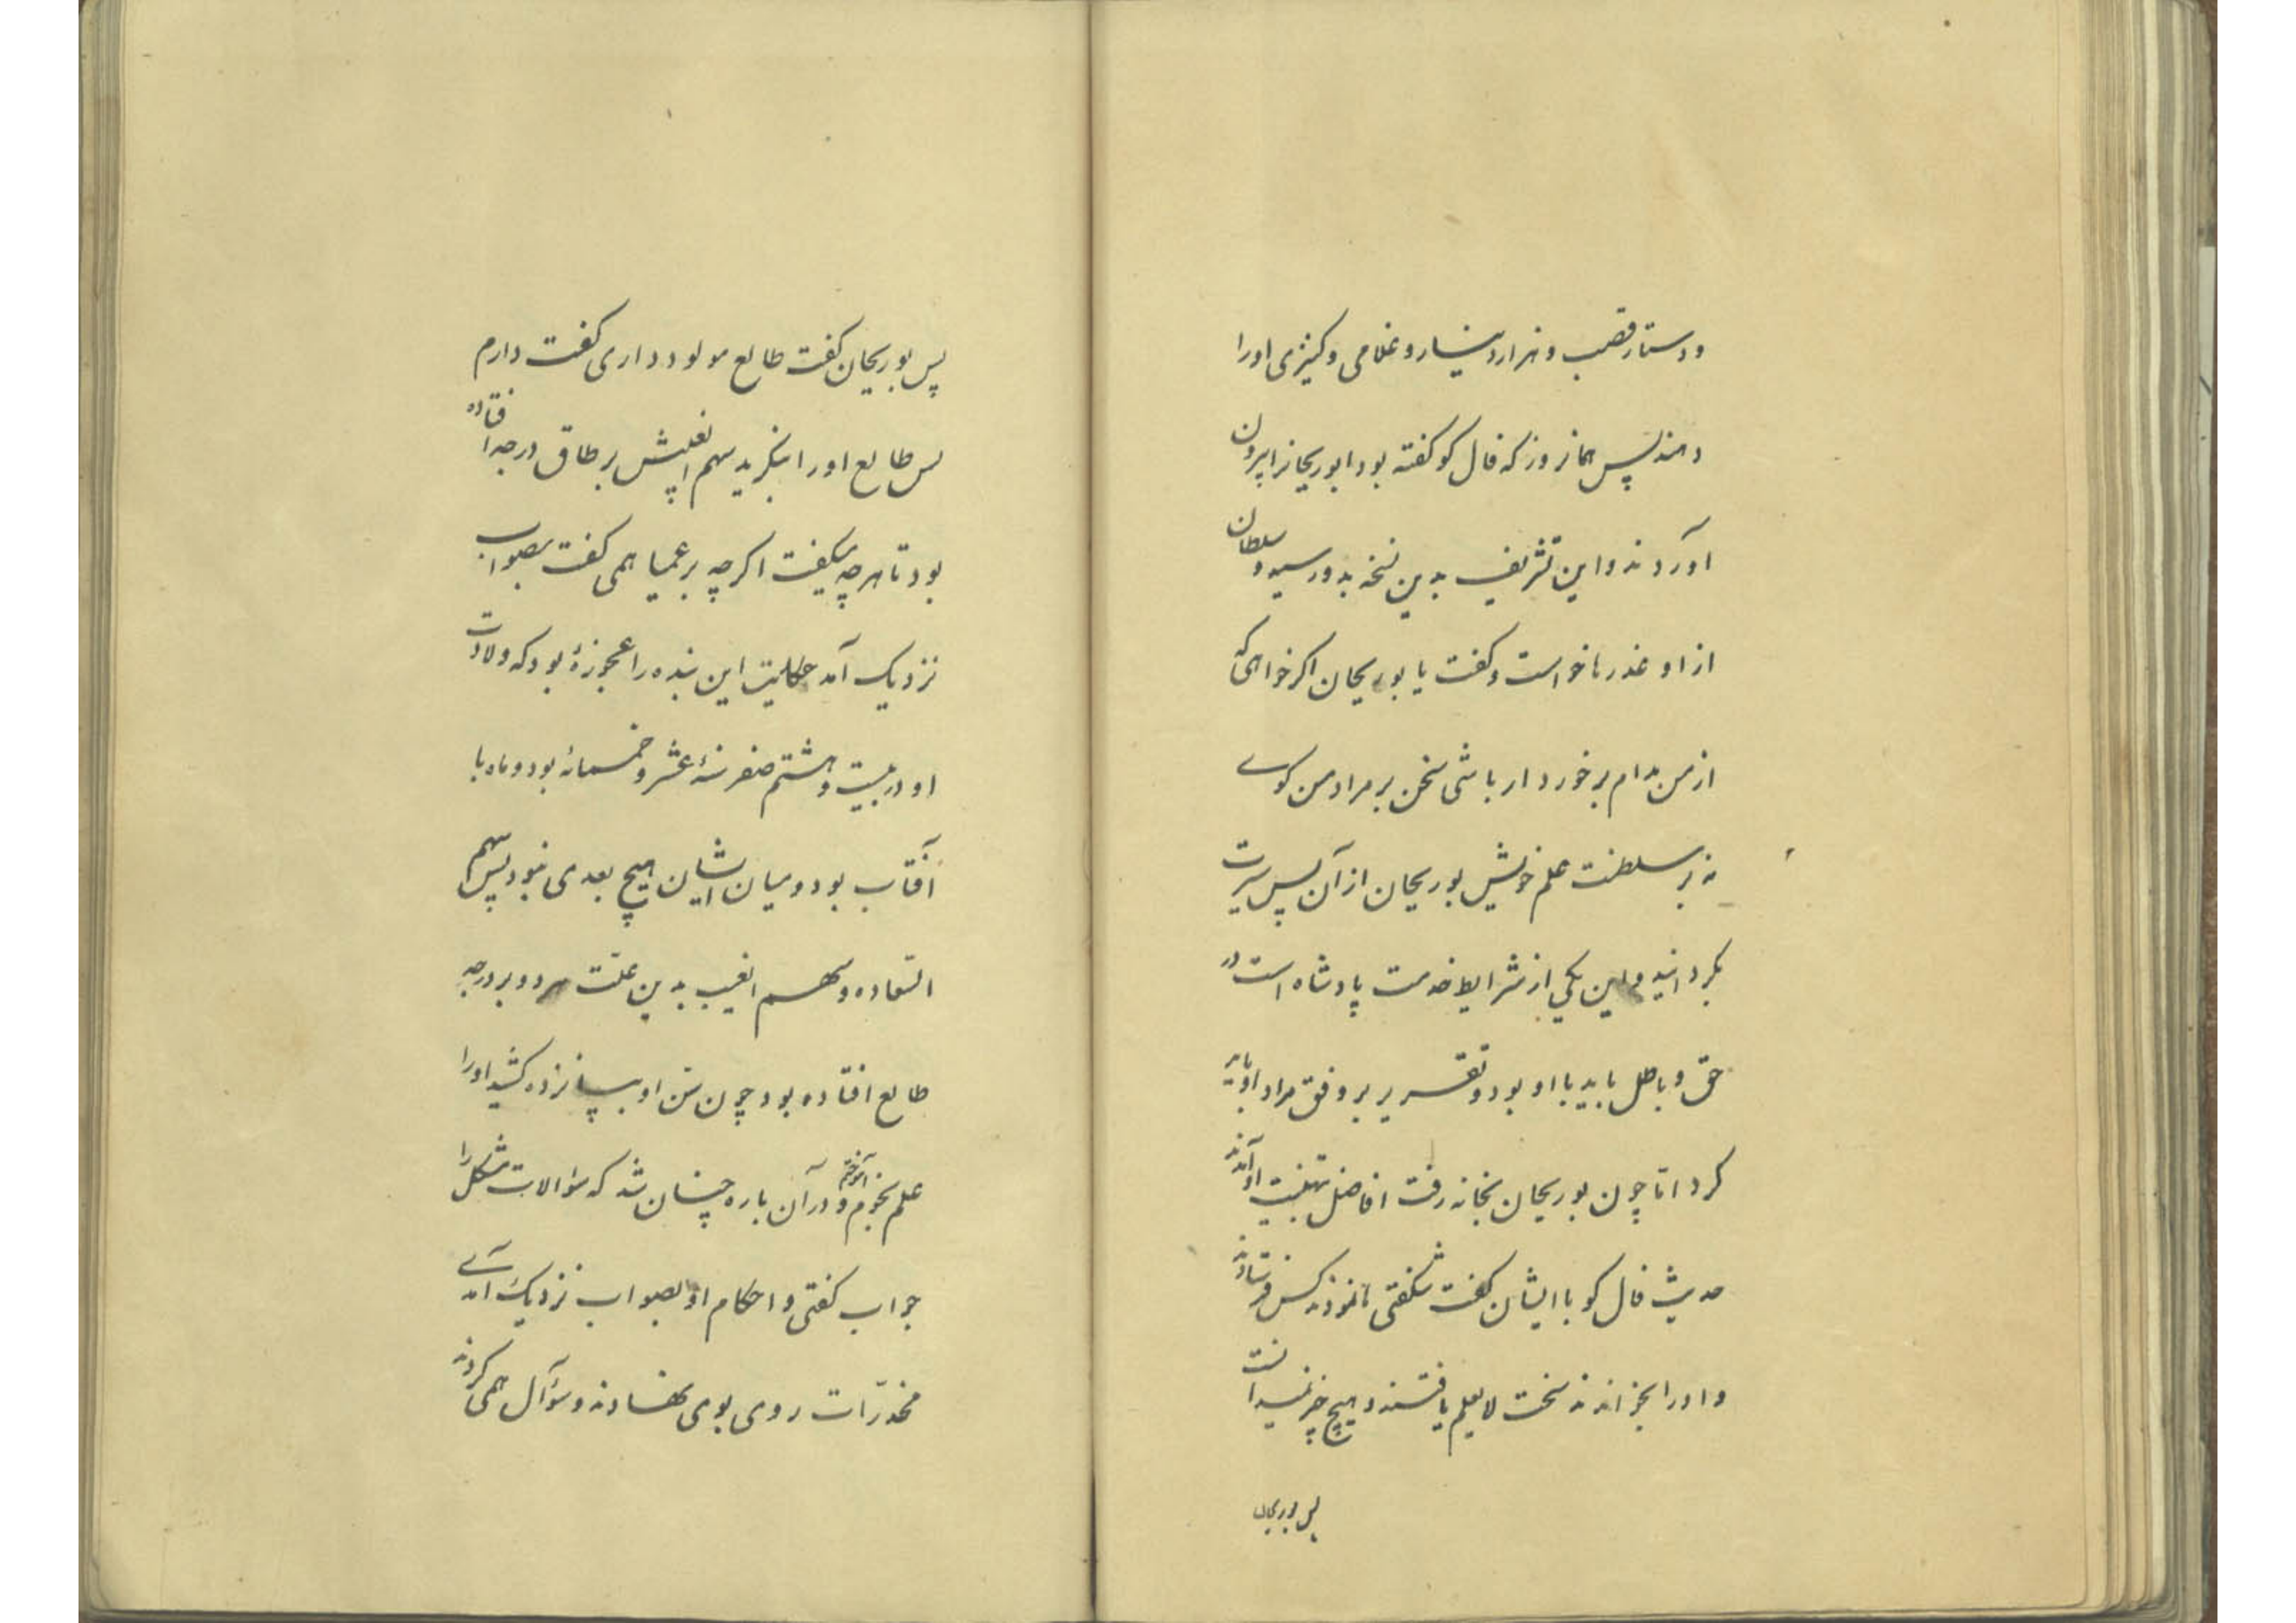 و دستار قصب و هزار دینار و غلامی و کنیزی او را
دهند پس همانروز که فال کو کفته بود ابوریحانرا بیرون
آوردند و این تشریف بدین نسخه بدو رسید و سلطان
از او عذرها خواست و کفت یا بوریحان اکر خواهی که
از من مدام برخوردار باشی سخن بر مراد من کوی
نه بر سلطنت علم خویش بوریحان از آن پس سیرت
بکردانید و این یکی از شرایط خدمت پادشاه است در
حق و باطل باید با او بود و تقریر بر وفق مراد او باید
کرد اما چون بوریحان بخانه رفت افاضل بتهنیت او آمدند
حدیث فال کو با ایشان کفت شکفتی نمودند کس فرستادند
و او را بخواندند سخت لایعلم یافتند و هیچ چیز نمیدانست
پس بوریحان
پس بوریحان کفت طالع مولود داری کفت دارم
پس طالع او را بنکرید سهم الغیبش بر حاق درجه افتاده
بود تا هر چه میکفت اکرچه بر عمیا همی کفت بصواب
نزدیک آمد حکایت این بنده را عجوزۀ بود که ولادت
او در بیست و هشتم صفر سنۀ عشر و خمسمائه بود و ماه با
آفتاب بود و میان ایشان هیچ بعدی نبود پس سهم
السّعاده و سهم الغیب بدین علّت هر دو بر درجه
طالع افتاده بود چون سن او بپانزده کشید او را
علم نجوم آموختم و در آن باره چنان شد که سؤالات مشکل را
جواب کفتی و احکام او بصواب نزدیک آمدی
مخدّرات روی بوی نهادند و سؤال همی کردند